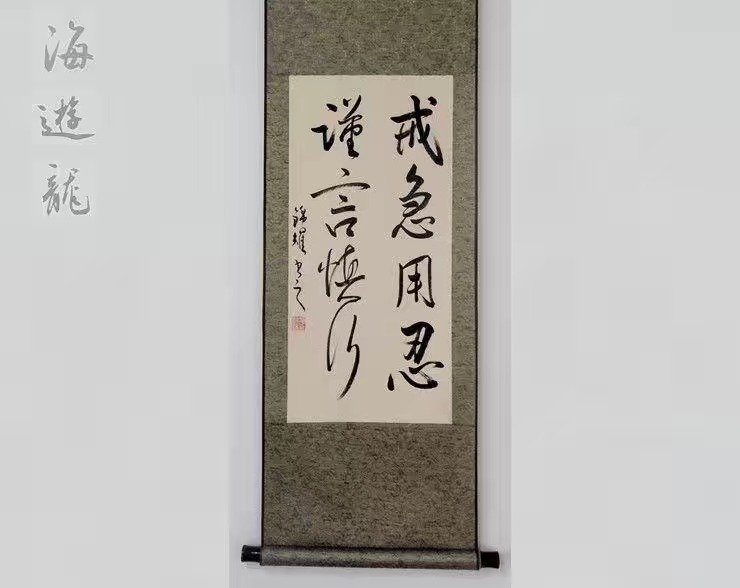 海遊龍
戒急用忍
謹言慎行
錦耀書之